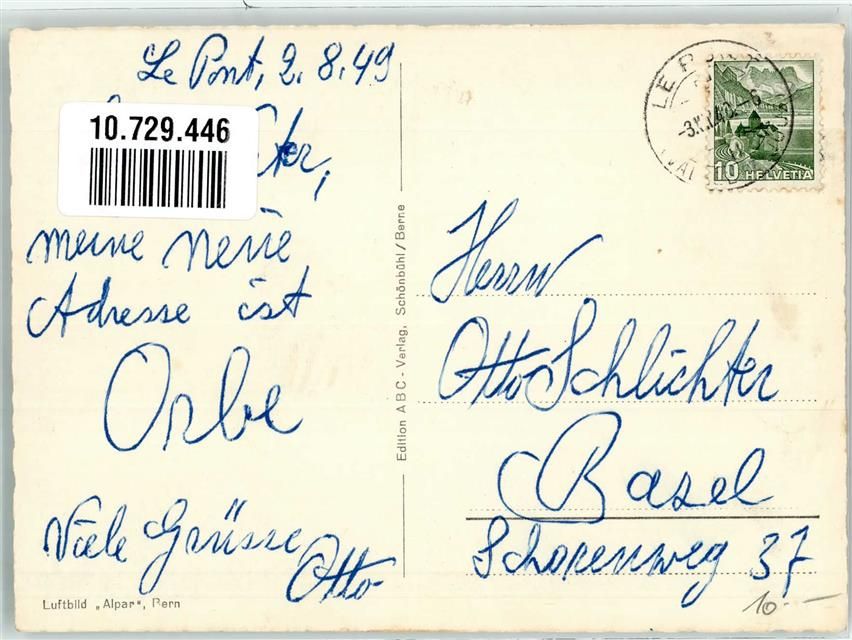 Le Pont, 2.8.49
10.729.446
meine neue
Adresse ist
Orbe
Viele Grüsse
Otto
Luftbild „Alpar", Bern
Edition ABC - Verlag, Schönbühl/Berne
10 HELVETIA
Herrn
Otto Schlichter
Basel
Schorenweg 37
10.-